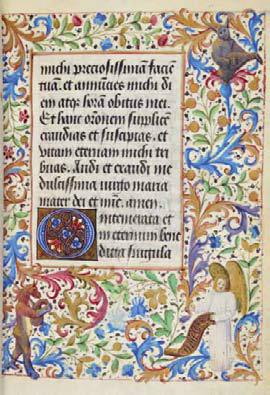 michi preciosissimā faciē
tuā. et annūcies michi di
em atqȝ horā obitus mei.
Et hanc oronem supplicē
exaudias et suscipias. et
vitam eternam michi tri
buas. Audi et exaudi me
dulcissima virgo maria
mater dei et mīe. amen.
O intemerata et
in eternum bene
dicta singula